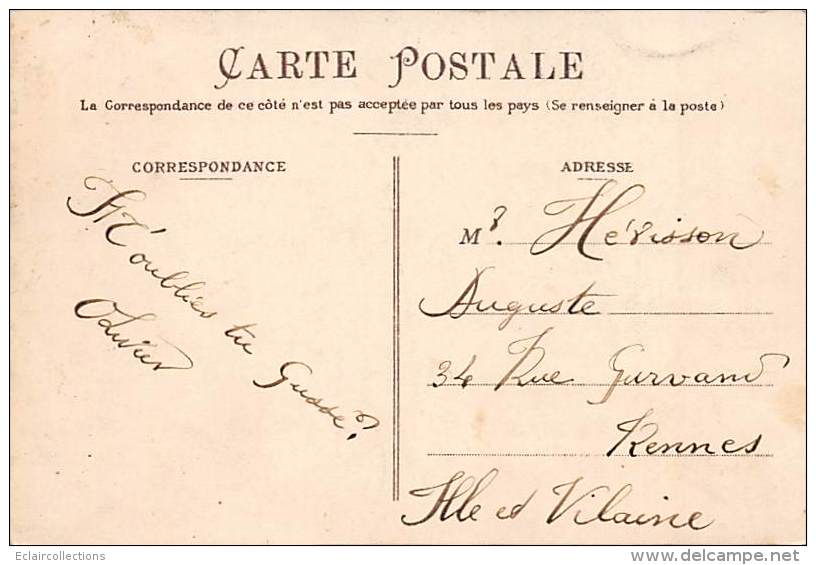 CARTE POSTALE
La Correspondance de ce côté n'est pas acceptée par tous les pays (Se renseigner à la poste)
CORRESPONDANCE
M'oublies tu Gusse?
Olivier
ADRESSE
Mr. Hérisson
Auguste
34 Rue Gurvand
Rennes
Ille et Vilaine
Eclaircollections
www.delcampe.net